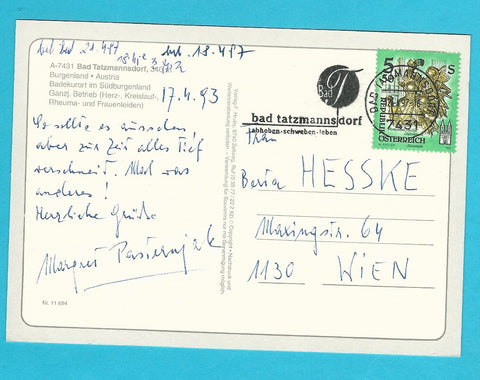 21.4.97
18.4.97
A-7431 Bad Tatzmannsdorf,
Burgenland • Austria
Badekurort im Südburgenland
Ganzj. Betrieb (Herz-, Kreislauf-,
Rheuma- und Frauenleiden)
17.4.93
So sollte es ausschen,
aber zur Zeit alles tief
verschneit. Mal was
anderes!
Herzliche Grüße
Margret
Nr. 11 684
Bad
T
bad tatzmannsdorf
abheben-schweben-leben
BAD TATZMANNSDORF
7431
5 S
REPUBLIK
ÖSTERREICH
Frau
HESSKE
Maxingstr. 64
1130 WIEN